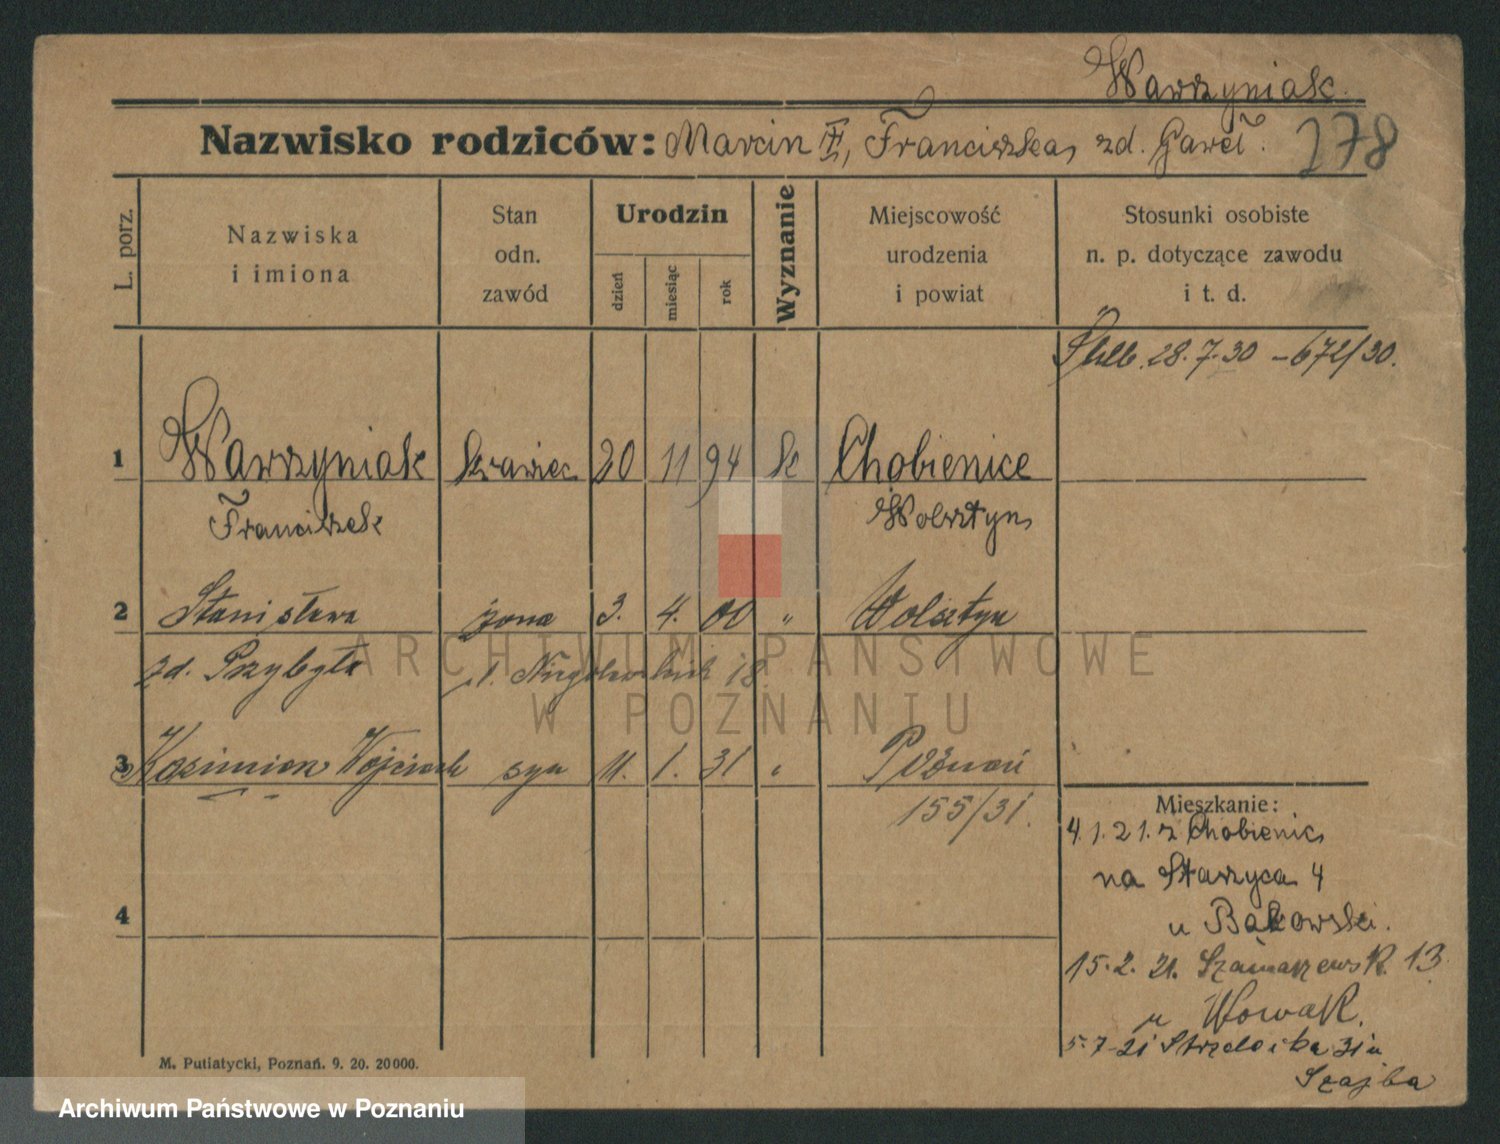 Wawrzyniak.
Nazwisko rodziców: Marcin Ŧ, Franciszka, zd. Gaweł.
278
L. porz.
Nazwiska
i imiona
Stan
odn.
zawód
Urodzin
dzień
miesiąc
rok
Wyznanie
Miejscowość
urodzenia
i powiat
Stosunki osobiste
n. p. dotyczące zawodu
i t. d.
28.7.30 - 672/30.
1 Wawrzyniak krawiec 20 11 94 k Chobienice
Franciszek Wolsztyn
2 Stanisława żona 3. 4. 00 " Wolsztyn
zd. Przybyła 18
3 Kazimierz Wojciech syn 11. 1. 31 " Poznań
155/31.
Mieszkanie:
4.1.21. z Chobienic
na Starzyca 4
u Bąkowski.
4
15.2.21. Szamarzewsk. 13
u Nowak.
5.7.21 Strzelecka 31 u
Szajba
M. Putiatycki, Poznań. 9. 20. 20000.
ARCHIWUM PAŃSTWOWE
W POZNANIU
Archiwum Państwowe w Poznaniu